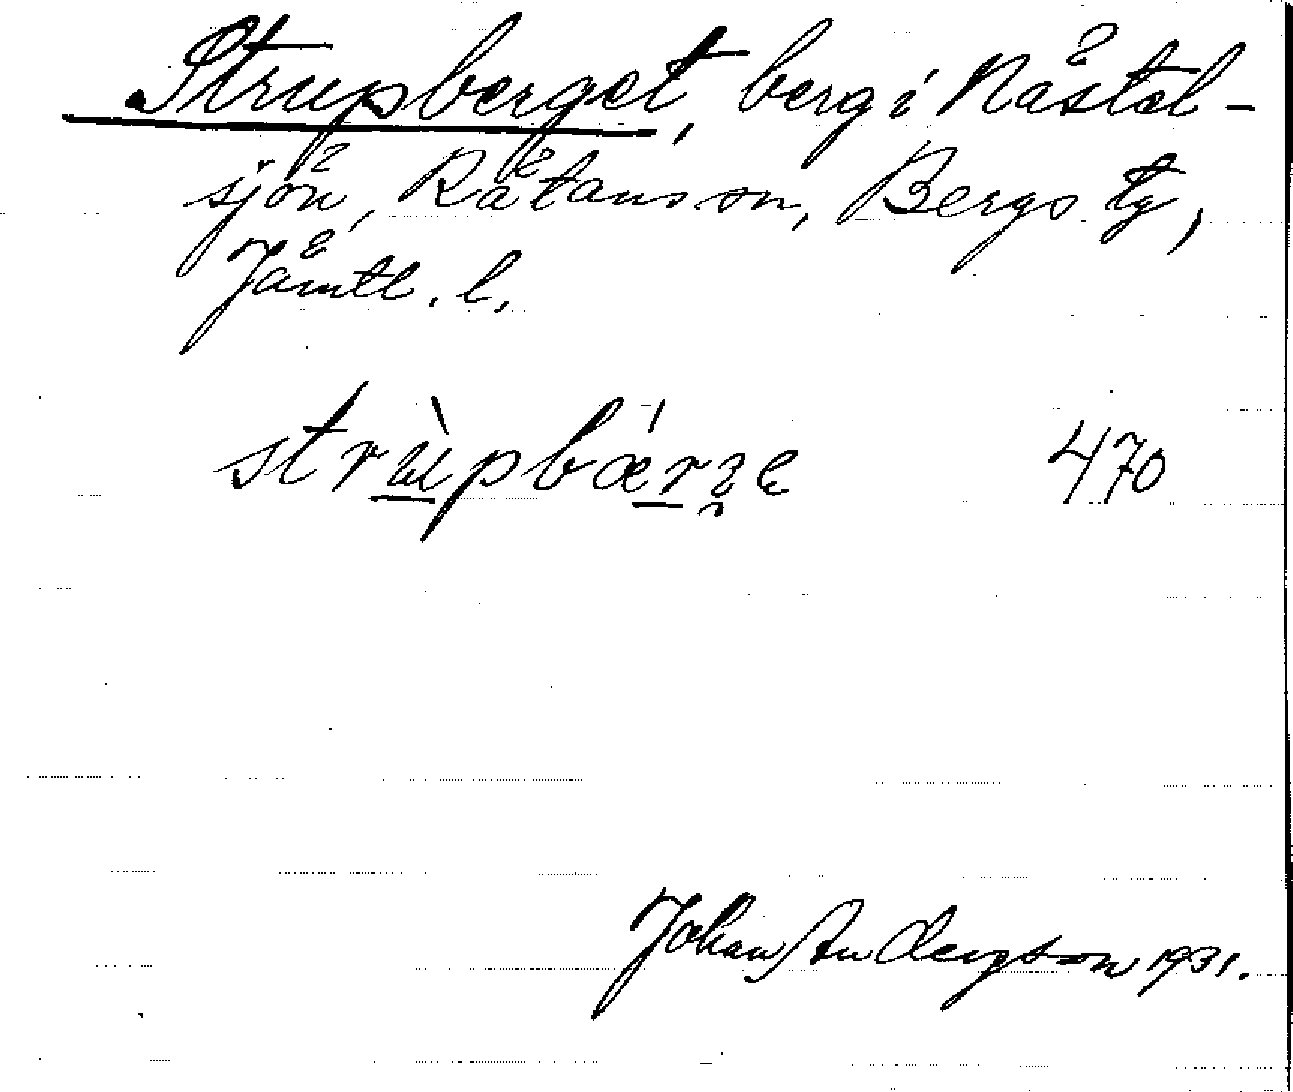 Strupberget, berg i Nåstel-
sjön, Rätans sn, Bergs tg,
Jämtl. l.
470
Johan Anderson 1931.